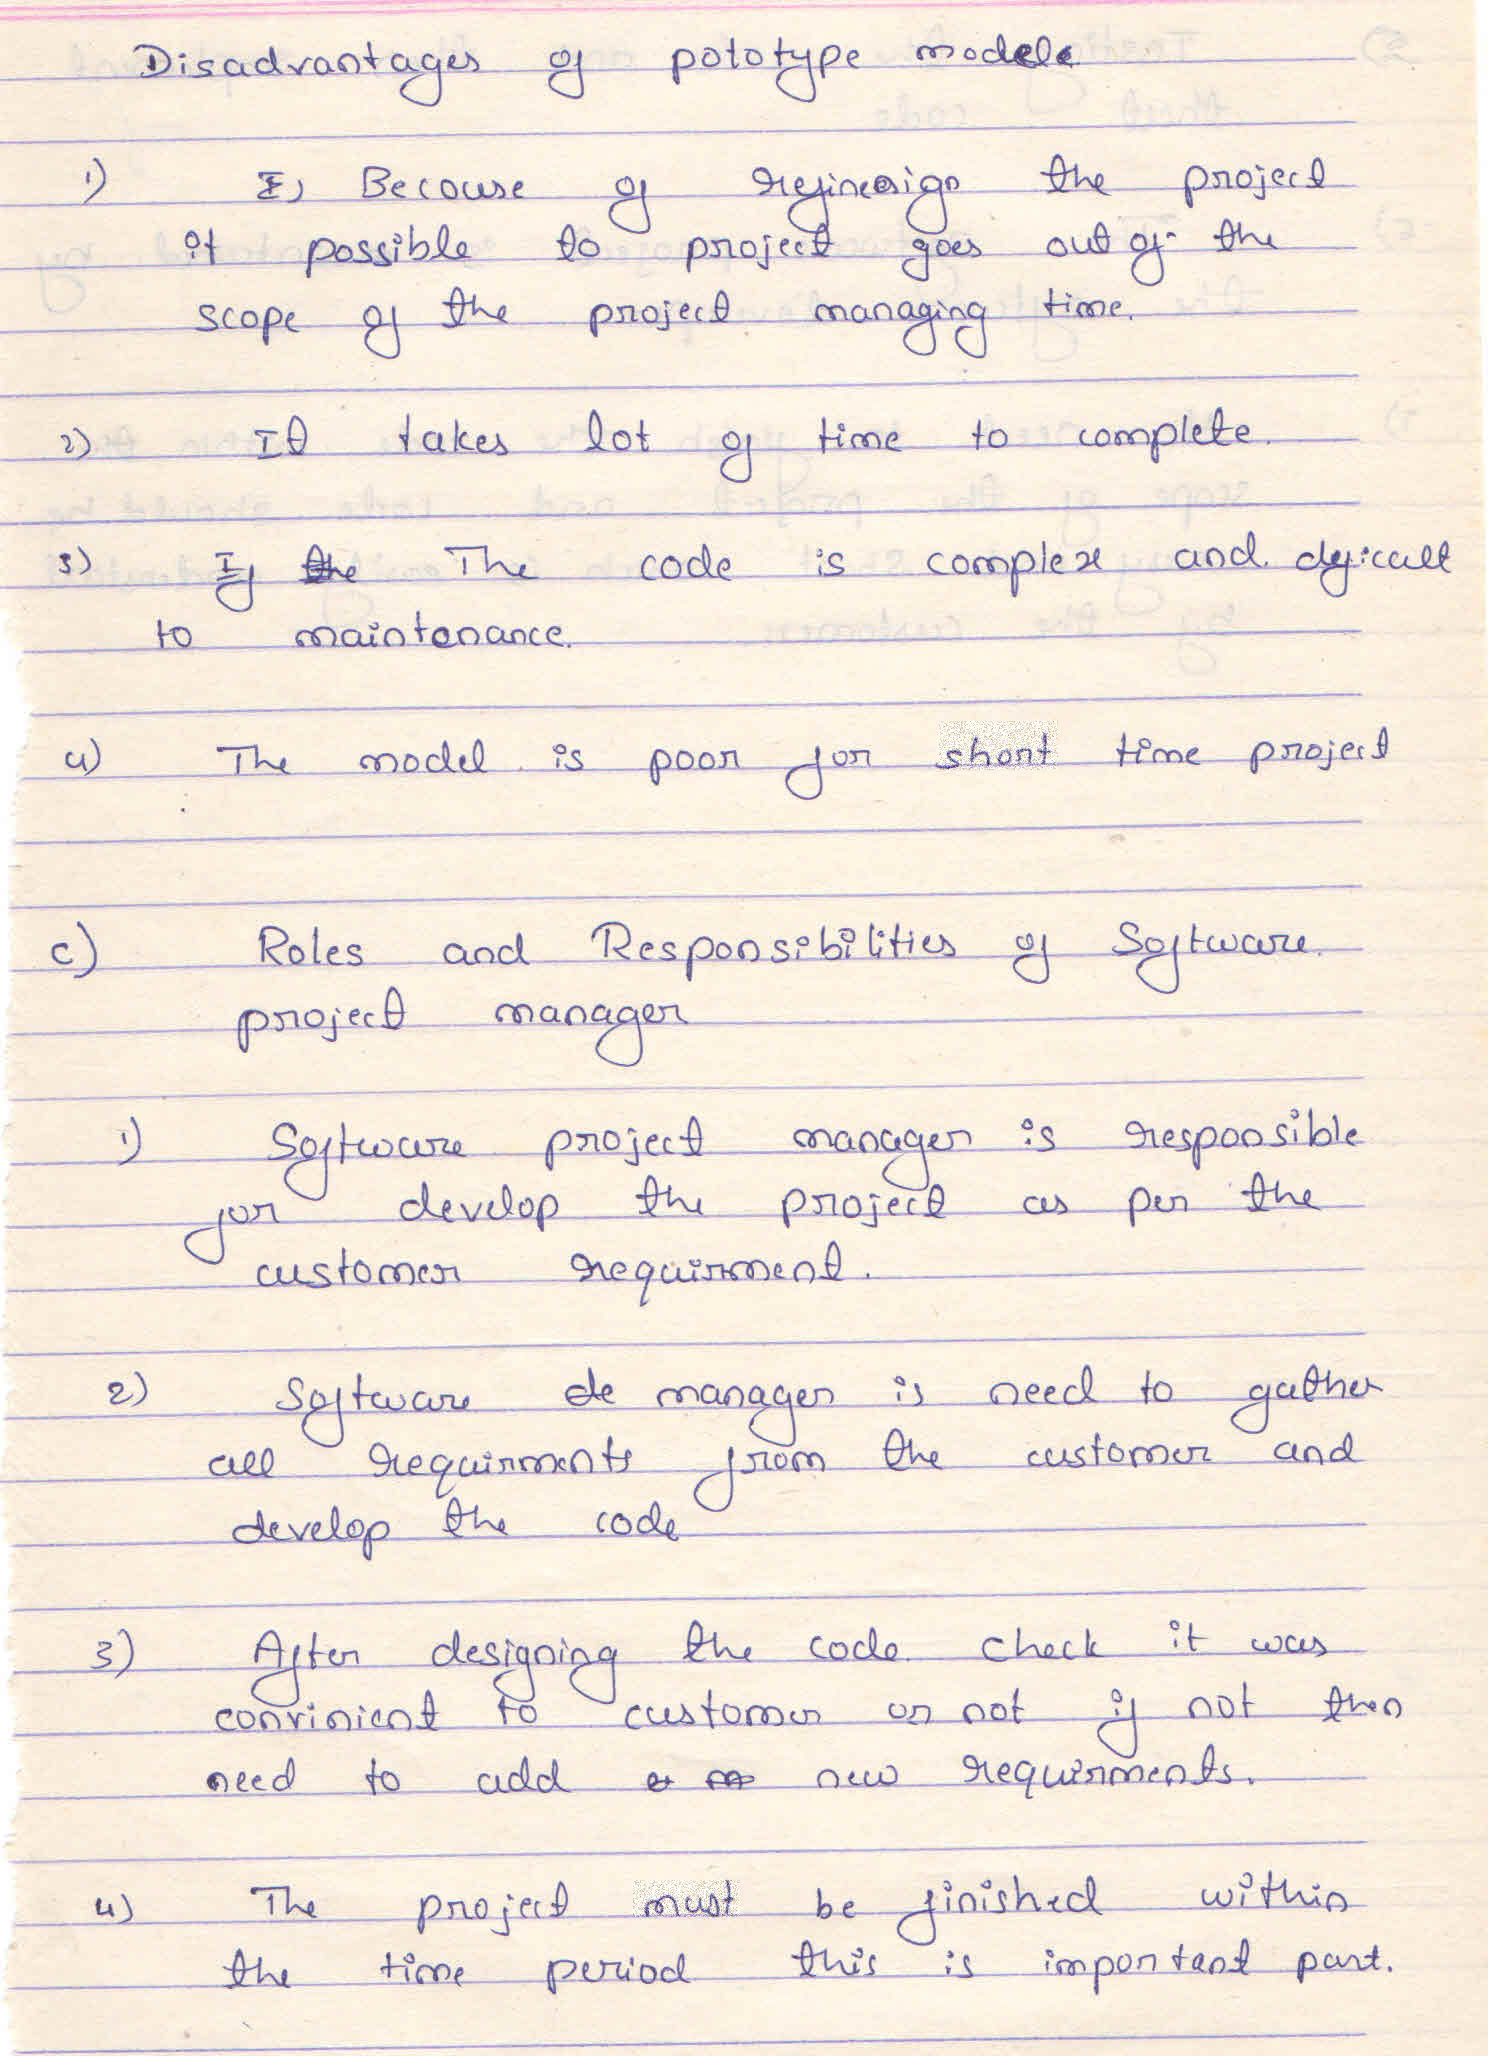 Disadvantages of pototype models
1) Becouse of the project
it possible to project goes out of the
scope of the project managing time.
2) It takes lot of time to complete.
3) If the The code is complex and dificult
to maintenance.
4) The model is poor for short time project
c) Roles and Responsibilities of Software
project manager
1) Software project manager is responsible
for develop the project as per the
customer requirment.
2) Software de manager is need to gather
all requirments from the customer and
develop the code
3) After designing the code check it was
convinient to customer or not if not then
need to add new requirments.
4) The project must be finished within
the time period this is important part.